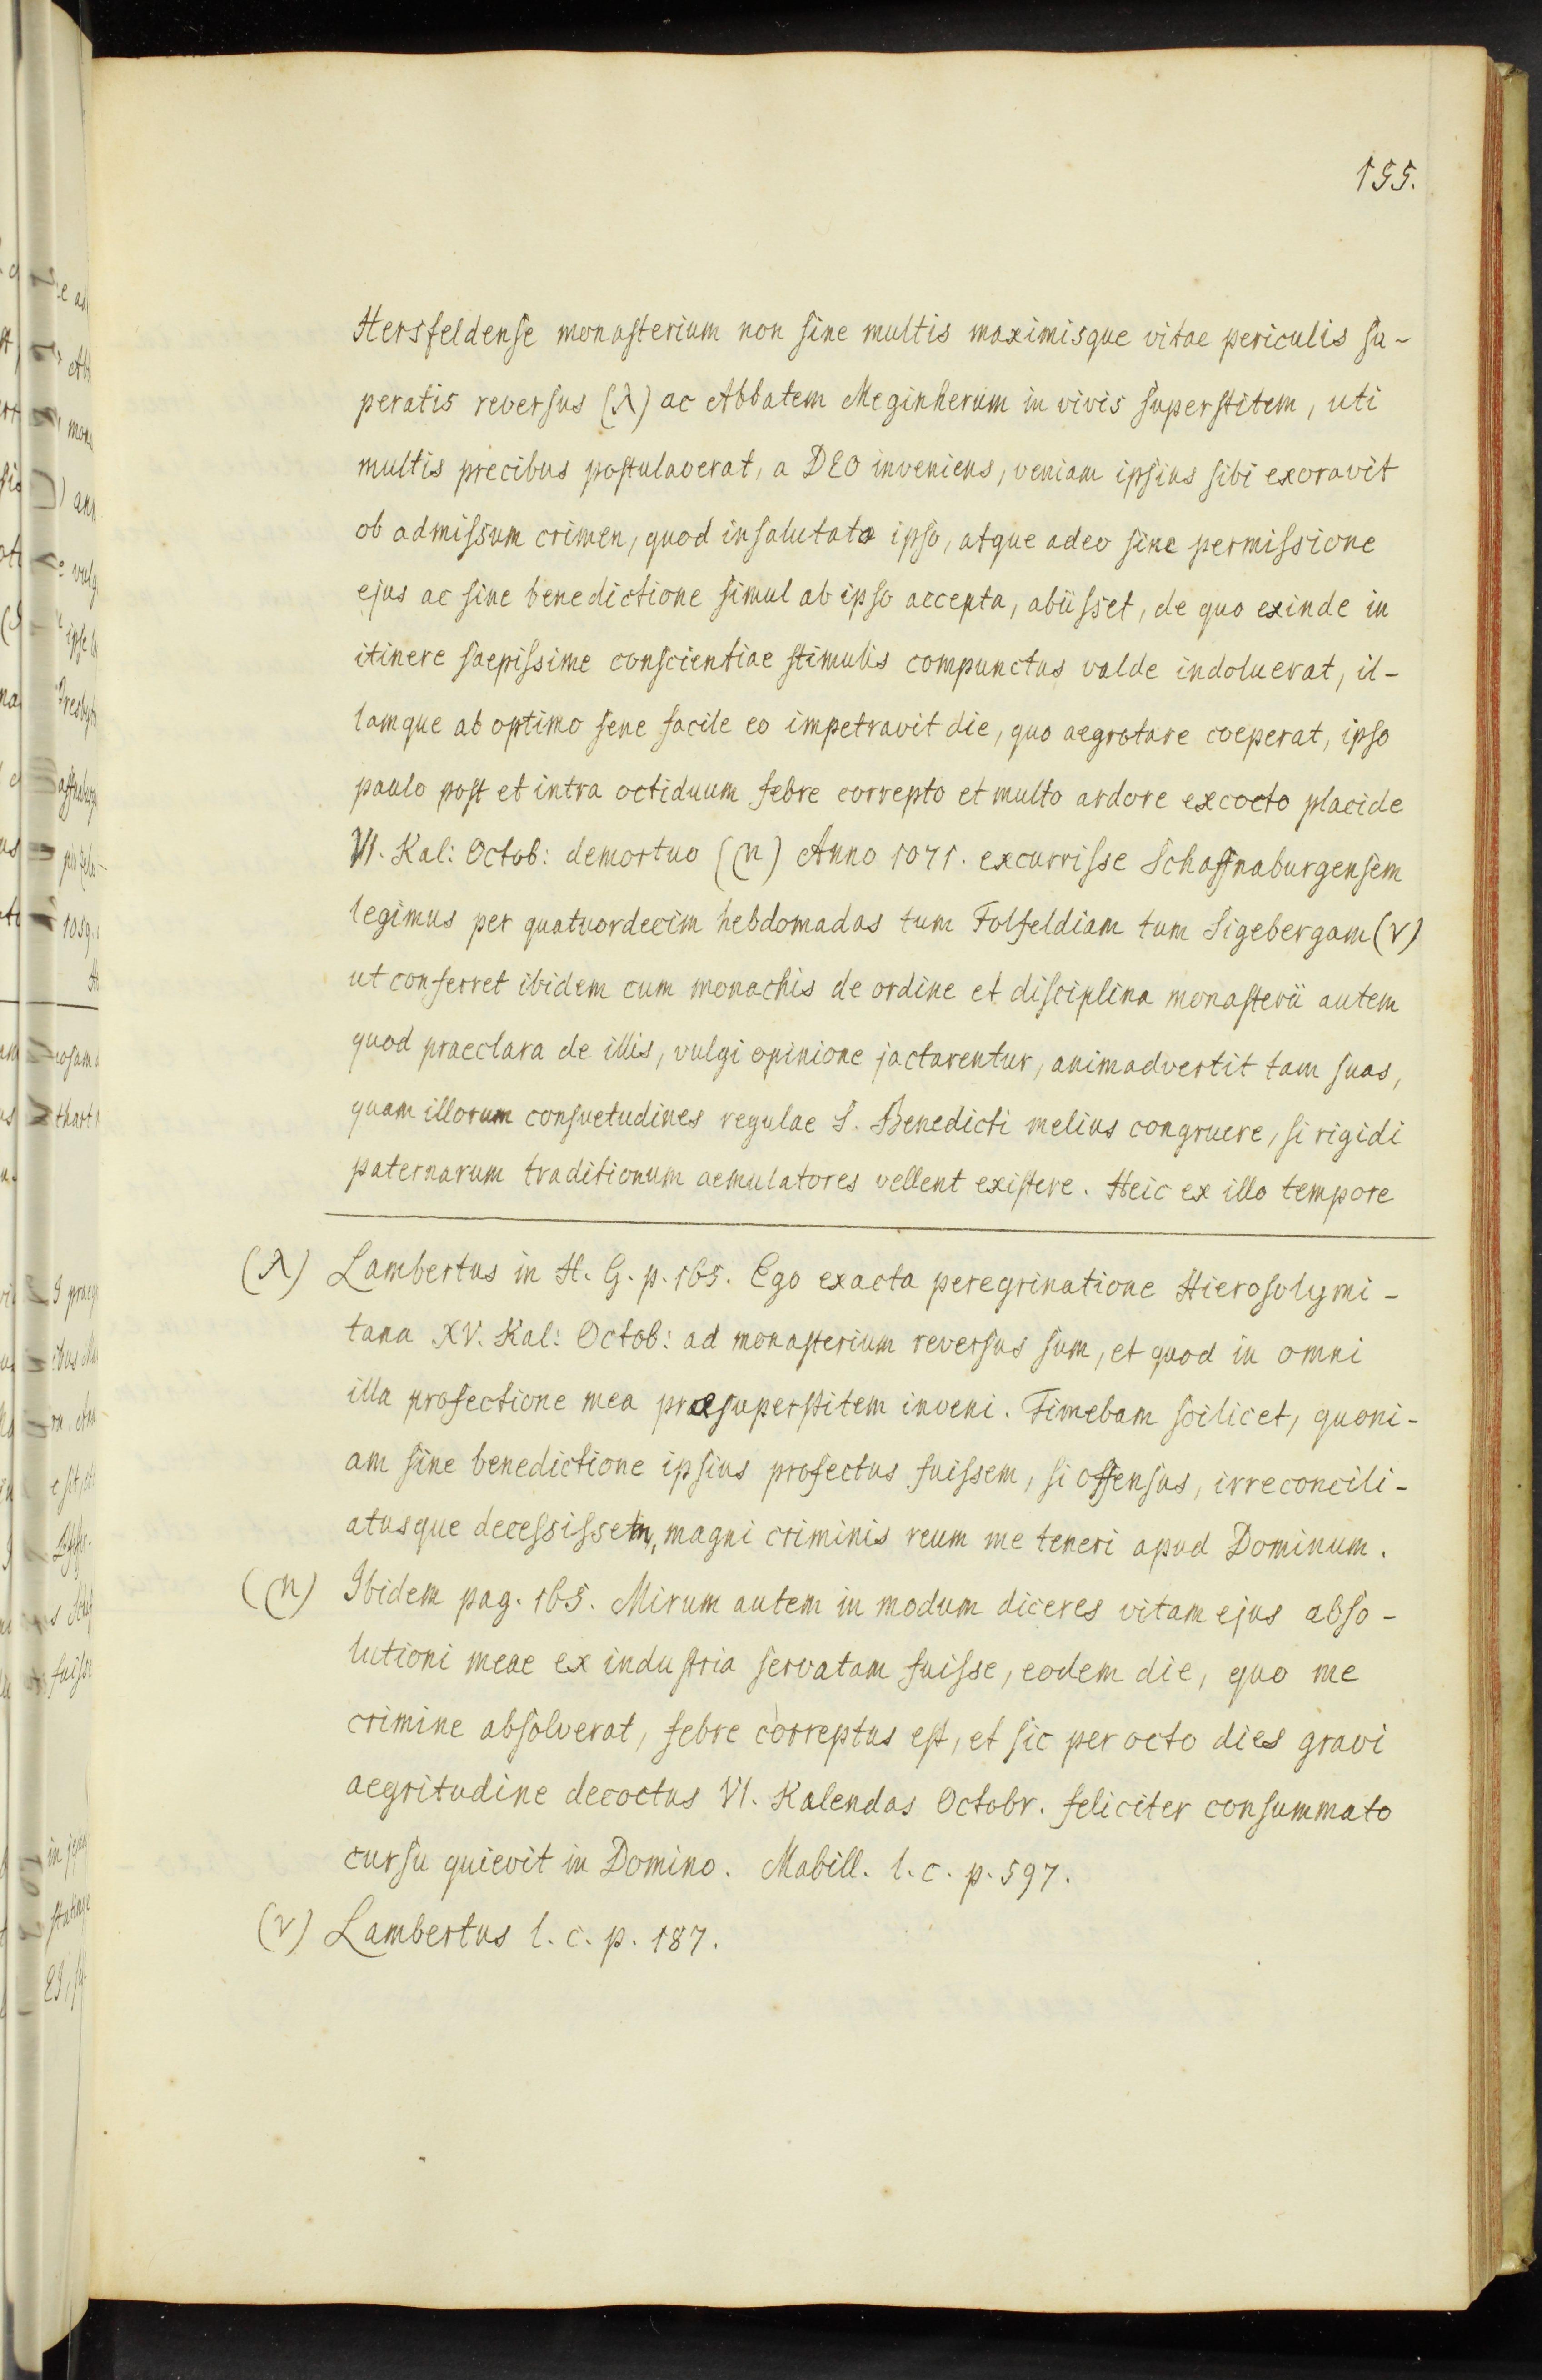 155.
Hersfeldense monasterium non sine multis maximisque vitae periculis su-
peratis reversus (λ) ac Abbatem Meginherum in vivis superstitem, uti
multis precibus postulaverat, a DEO inveniens, veniam ipsius sibi exoravit
ob admissum crimen, quod insalutato ipso, atque adeo sine permissione
ejus ac sine benedictione simul ab ipso accepta, abiisset, de quo exinde in
itinere saepissime conscientiae stimulis compunctus valde indoluerat, il-
lamque ab optimo sene facile eo impetravit die, quo aegrotare coeperat, ipso
paulo post et intra octiduum febre correpto et multo ardore excocto placide
VI. Kal: Octob: demortuo (m) Anno 1071. excurrisse Schaffnaburgensem
legimus per quatuordecim hebdomadas tum Folfeldiam tum Sigebergam (ν)
ut conferret ibidem cum monachis de ordine et disciplina monasterii autem
quod praeclara de illis, vulgi opinione jactarentur, animadvertit tam suas,
quam illorum consuetudines regulae S. Benedicti melius congruere, si rigidi
paternarum traditionum aemulatores vellent existere. Heic ex illo tempore
(λ) Lambertus in H. G. p. 165. Ego exacta peregrinatione Hierosolymi-
tana XV. Kal: Octob: ad monasterium reversus sum, et quod in omni
illa profectione mea praesuperstitem inveni. Timebam scilicet, quoni-
am sine benedictione ipsius profectus fuissem, si offensus, irreconcili-
atusque decessissem, magni criminis reum me teneri apud Dominum.
(m) Ibidem pag. 165. Mirum autem in modum diceres vitam ejus abso-
lutioni meae ex industria servatam fuisse, eodem die, quo me
crimine absolverat, febre correptus est, et sic per octo dies gravi
aegritudine decoctus VI. Kalendas Octobr. feliciter consummato
cursu quievit in Domino. Mabill. l. c. p. 597.
(ν) Lambertus l. c. p. 187.